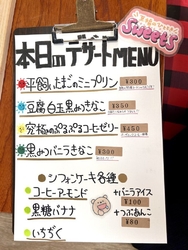 Sweets
本日のデザートMENU
平飼いたまごのミニプリン
¥300
豆腐白玉黒みつきなこ
¥350
究極のぷるぷるコーヒーゼリー
¥450
黒みつバニラきなこ
¥300
シフォンケーキ各種
コーヒーアーモンド
+バニラアイス
¥100
黒糖バナナ
+つぶあんこ
¥80
いちぢく